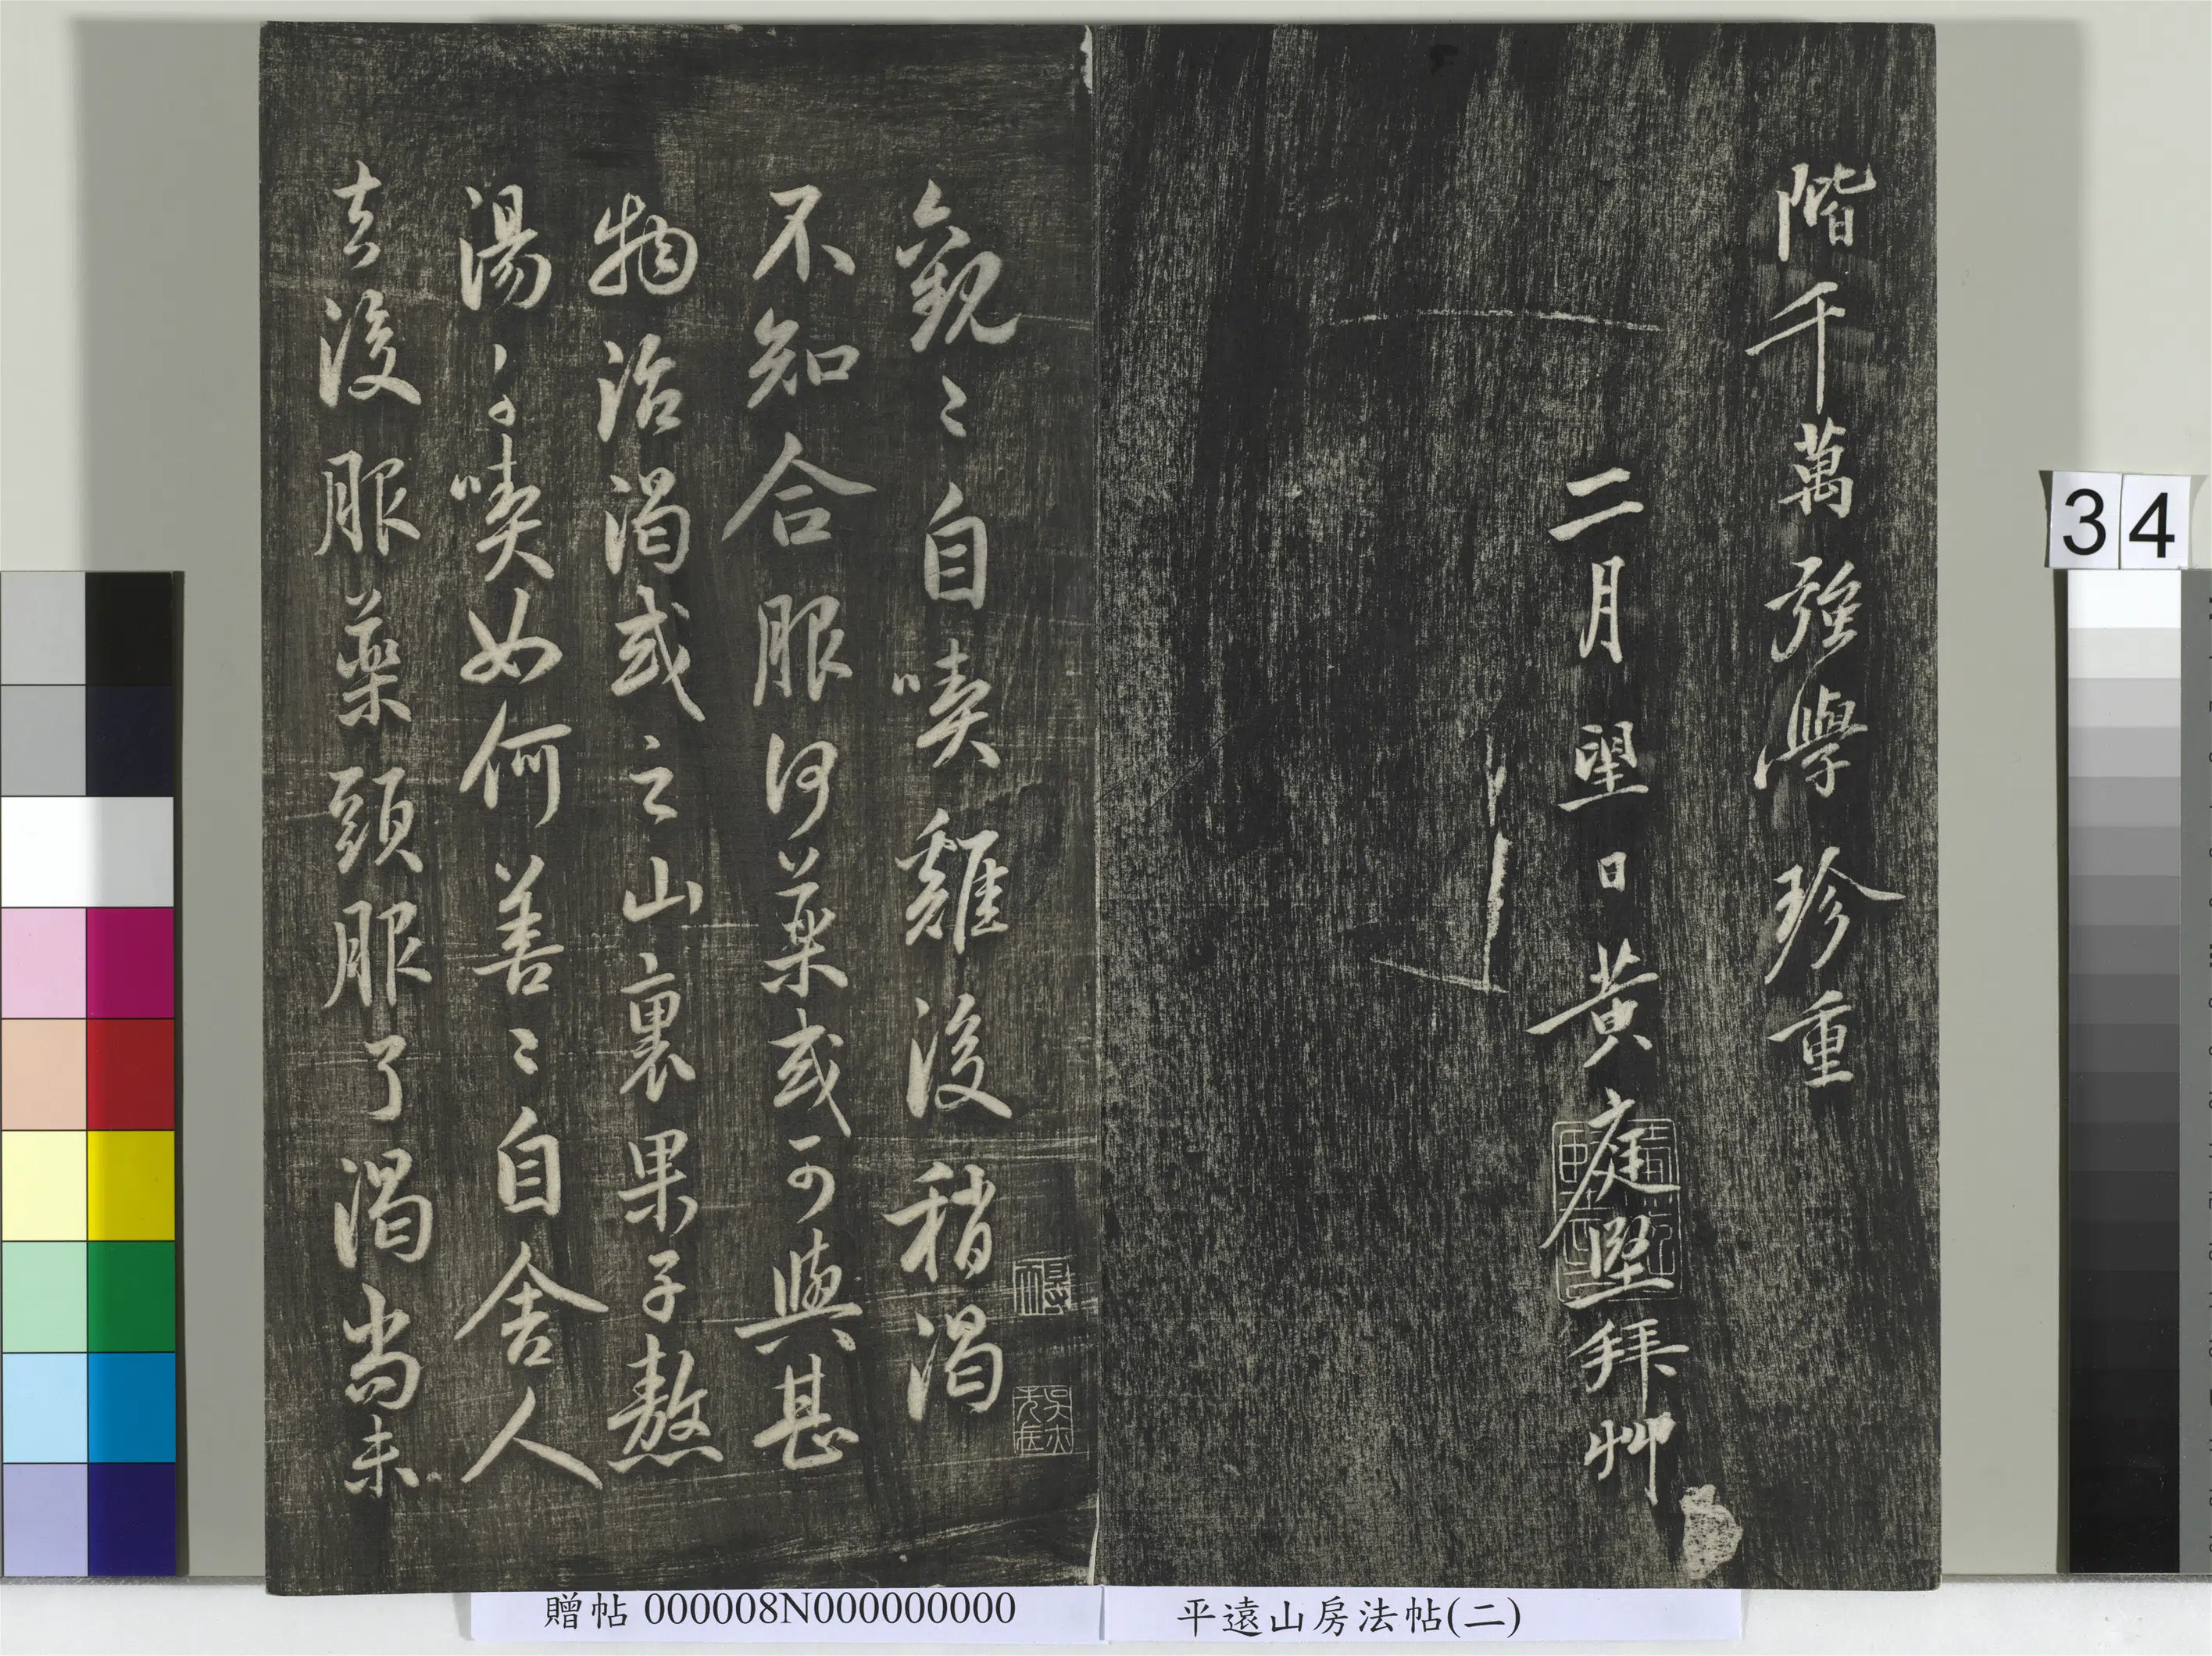 階千萬強學珍重
二月望日黃庭堅拜艸
觀〻自喫後稍渴
不知合服何藥或可與甚
物治渴或之山裏果子熬
湯喫如何善〻自舍人
去後服藥頭服了渴尚未
34
贈帖 000008N000000000
平遠山房法帖(二)